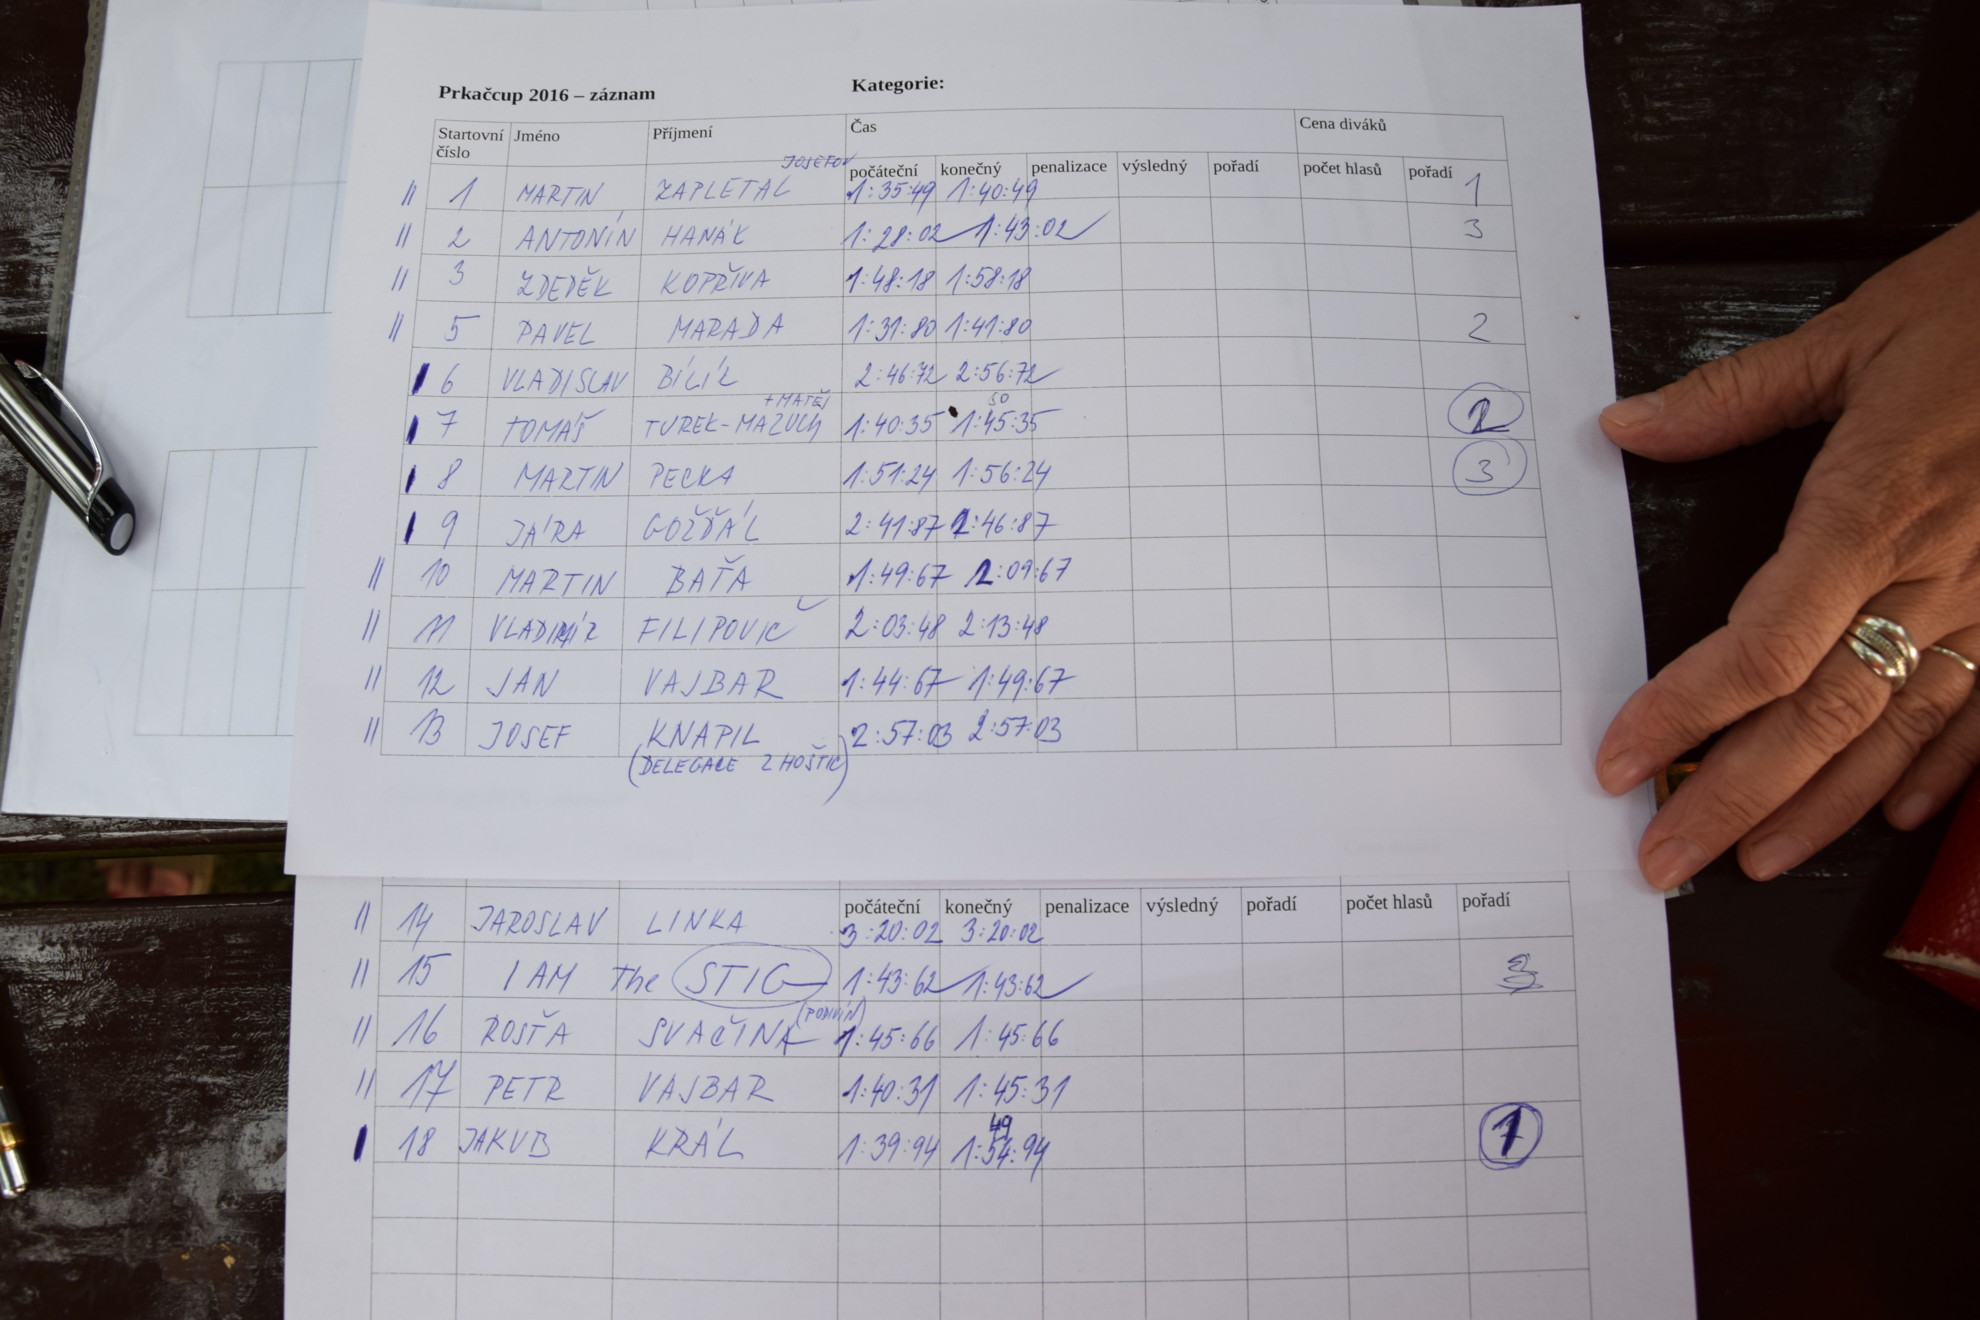 Prkačcup 2016 – záznam Kategorie:
Startovní číslo Jméno Příjmení Čas Cena diváků
počáteční konečný penalizace výsledný pořadí počet hlasů pořadí
JOSEFOV
|| 1 MARTIN ZAPLETAL 1:35:49 1:40:49 1
|| 2 ANTONÍN HANÁK 1:28:02 1:43:02 3
|| 3 ZDEDĚK KOPŘIVA 1:48:18 1:58:18
|| 5 PAVEL MARADA 1:31:80 1:41:80 2
| 6 VLADISLAV BÍLÍZ 2:46:72 2:56:72
+ MATĚJ 50
| 7 TOMÁŠ TUREK-MAZUCH 1:40:35 1:45:35 2
| 8 MARTIN PECKA 1:51:24 1:56:24 3
| 9 JÁRA GOŽĎÁL 2:41:87 2:46:87
|| 10 MARTIN BAŤA 1:49:67 2:09:67
|| 11 VLADIMÍR FILIPOVIČ 2:03:48 2:13:48
|| 12 JAN VAJBAR 1:44:67 1:49:67
|| 13 JOSEF KNAPIL 2:57:03 2:57:03
(DELEGACE Z HOŠTIC)
počáteční konečný penalizace výsledný pořadí počet hlasů pořadí
|| 14 JAROSLAV LINKA 3:20:02 3:20:02
|| 15 I AM The STIG 1:43:62 1:43:62 3
(PODIVÍN)
|| 16 ROSŤA SVAČINA 1:45:66 1:45:66
|| 17 PETR VAJBAR 1:40:31 1:45:31
49
| 18 JAKUB KRÁL 1:39:94 1:54:94 1